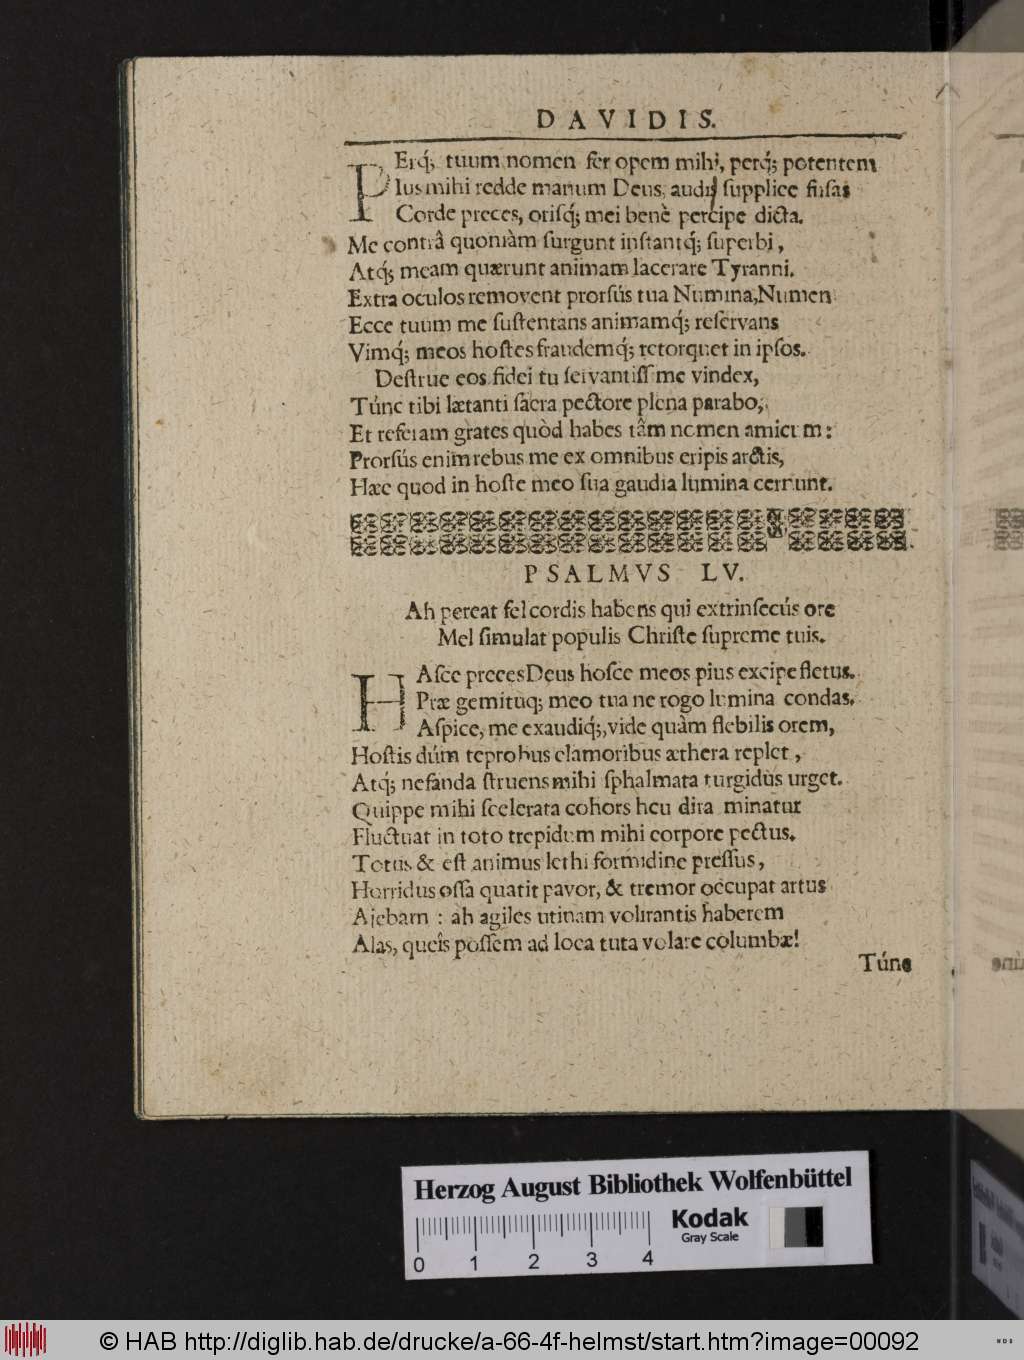 DAVIDIS.
PErq́; tuum nomen fer opem mihi, perq́; potentem
Ius mihi redde manum Deus, audi supplice fusas
Corde preces, orisq́; mei benè percipe dicta.
Me contrâ quoniàm surgunt instantq́; superbi,
Atq́; meam quærunt animam lacerare Tyranni.
Extra oculos removent prorsús tua Numina, Numen
Ecce tuum me sustentans animamq́; reservans
Vimq́; meos hostes fraudemq́; retorquet in ipsos.
Destrue eos fidei tu servantiss me vindex,
Túnc tibi lætanti sacra pectore plena parabo,
Et referam grates quòd habes tâm nomen amicum:
Prorsús enim rebus me ex omnibus eripis arctis,
Hæc quod in hoste meo sua gaudia lumina cernunt.
PSALMVS LV.
Ah pereat fel cordis habens qui extrinsecús ore
Mel simulat populis Christe supreme tuis.
HAsce preces Deus hosce meos pius excipe fletus.
Præ gemituq; meo tua ne rogo lumina condas.
Aspice, me exaudiq́;, vide quàm flebilis orem,
Hostis dúm reprobus clamoribus æthera replet,
Atq́; nefanda struens mihi sphalmata turgidùs urget.
Quippe mihi scelerata cohors heu dira minatur
Fluctuat in toto trepidum mihi corpore pectus.
Totus & est animus lethi formidine pressus,
Horridus ossa quatit pavor, & tremor occupat artus
Ajebam : ah agiles utinam volitantis haberem
Alas, queîs possem ad loca tuta volare columbæ!
Túnc
Herzog August Bibliothek Wolfenbüttel
0 1 2 3 4
Kodak
Gray Scale
© HAB http://diglib.hab.de/drucke/a-66-4f-helmst/start.htm?image=00092